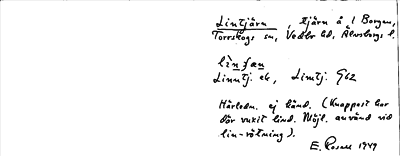 Lintjärn, tjärn å 1 Borgen,
Torrskogs sn, Vedbo hd. Älvsborgs l.
lìnfæn
Linntj. ek, Lintj. G62
Härledn. ej känd. (Knappast har
där vuxit lind. Möjl. använd vid
lin-rötning).
E. Rosell 1949